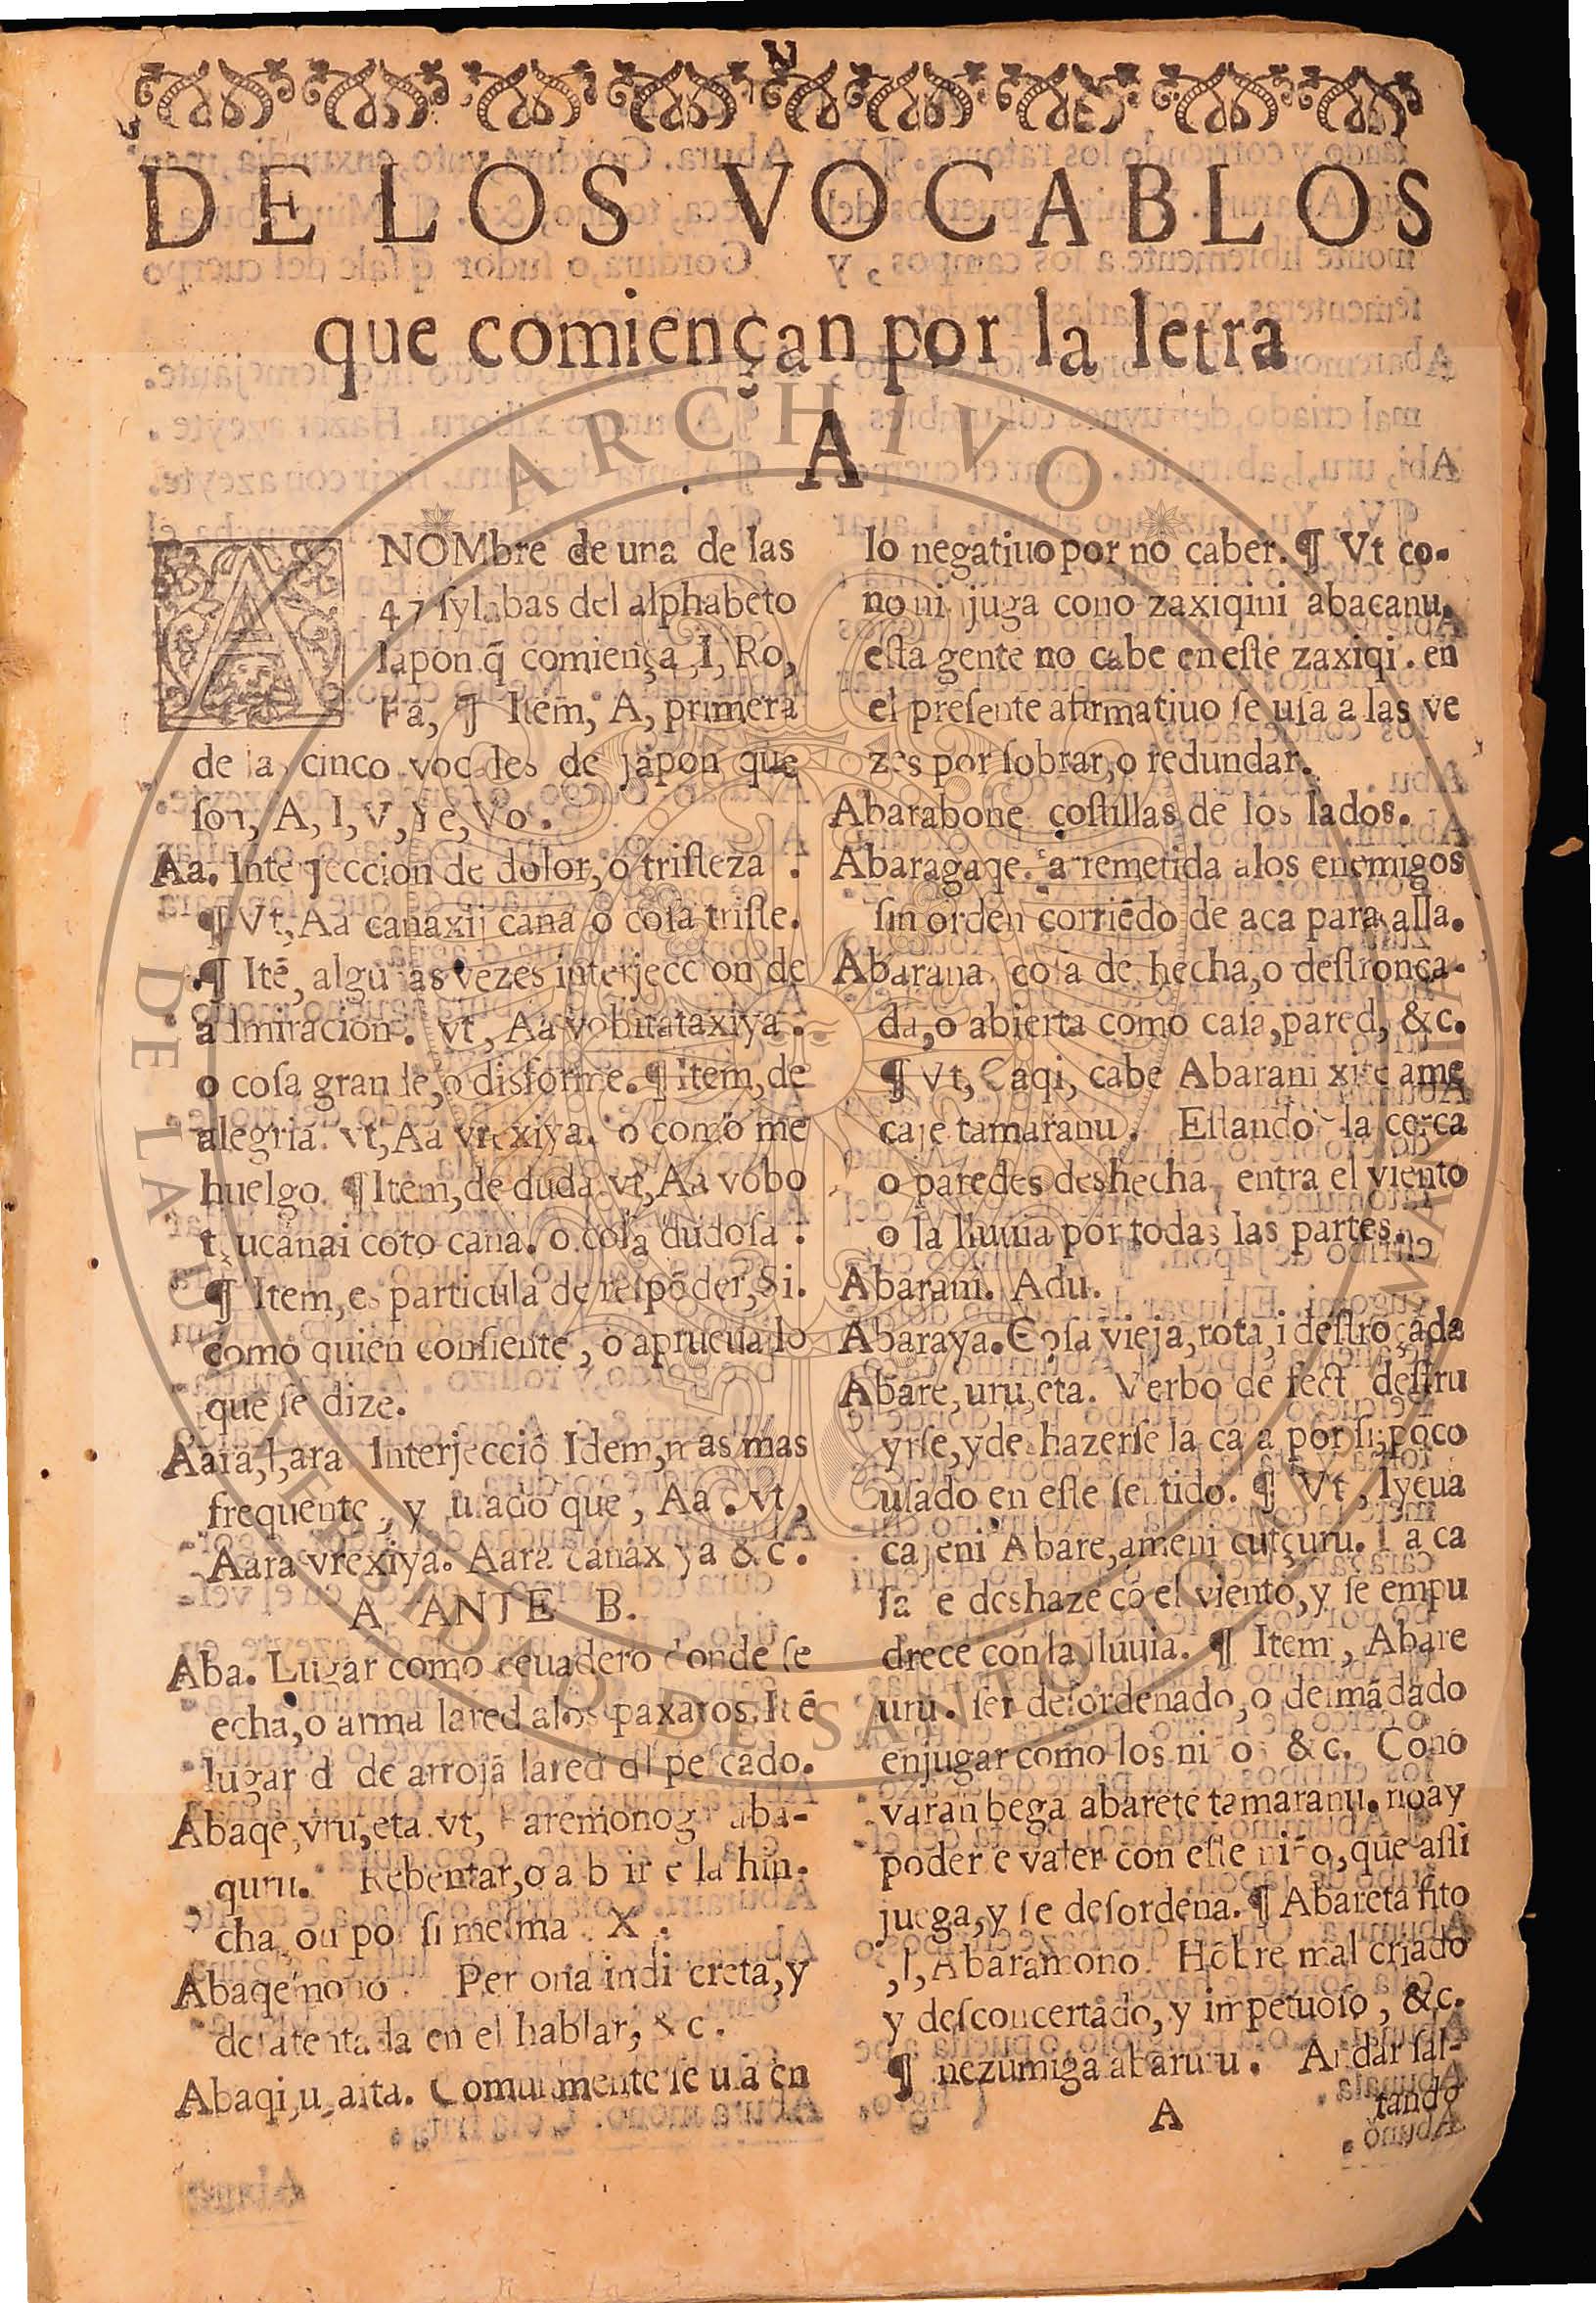 DE LOS VOCABLOS
que comiençan por la letra
A
A NOMbre de una de las
47 ſylabas del alphabeto
Iapon q̃ comiença, I, Ro,
Fa, ¶ Item, A, primera
de la cinco vocales de japon que
ſon, A, I, V, Ye, Vo.
Aa. Interjeccion de dolor, o triſteza.
¶ Vt, Aa canaxij cana o coſa triſte.
¶ Itẽ, algunas vezes interjeccion de
admiracion. vt, Aa vobitataxiya.
o coſa grande, o disforme. ¶ Item, de
alegria. vt, Aa vrexiya. o como me
huelgo. ¶ Item, de duda. vt, Aa vobo
tçucanai coto cana. o coſa dudoſa:
¶ Item, es particula de reſpõder, Si.
como quien conſiente, o aprueua lo
que ſe dize.
Aara, l, ara Interjecció Idem, mas mas
frequente, y uſado que, Aa. vt,
Aara vrexiya. Aara canaxiya &c.
A ANTE B.
Aba. Lugar como ceuadero donde ſe
echa, o arma la red a los paxaros. Itẽ
lugar dõde arrojã la red dl peſcado.
Abaqe, vru, eta. vt, Faremonoga aba-
quru. Rebentar, o abrirſe la hin-
cha, ou por ſi meſma. X.
Abaqemono Perſona indiſcreta, y
deſatentada en el hablar, &c.
Abaqi, u, aita. Comunmente ſe uſa en
lo negatiuo por no caber. ¶ Vt co-
no ninjuga cono zaxiqini abacanu.
eſta gente no cabe en eſte zaxiqi. en
el preſente afirmatiuo ſe uſa a las ve
zes por ſobrar, o redundar.
Abarabone coſtillas de los lados.
Abaragaqe. arremetida a los enemigos
ſin orden corriẽdo de aca para alla.
Abarana coſa deshecha, o deſtronça-
da, o abierta como caſa, pared, &c.
¶ Vt, Caqi, cabe Abarani xite ame
caje tamaranu. Eſtando la cerca
o paredes deshecha entra el viento
o la lluuia por todas las partes.
Abarani. Adu.
Abaraya. Coſa vieja, rota, i deſtroçada
Abare, uru, eta. Verbo defect deſtru
yrſe, y deshazerſe la caſa por ſi; poco
uſado en eſte ſentido. ¶ Vt, Iyeua
cajeni Abare, ameni cutçuru. La ca
ſa ſe deshaze cõ el viento, y ſe empu
drece con la lluuia. ¶ Item, Abare
uru. ſer deſordenado, o deſmãdado
en jugar como los niños &c. Cono
varanbega abarete tamaranu. no ay
poder ſe valer con eſte niño, que aſſi
juega, y ſe deſordena. ¶ Abareta fito
, l, Abaramono. Hõbre mal criado
y deſconcertado, y impetuoſo, &c.
¶ nezumiga abaruru. Andar ſal-
A tando
ARCHIVO
DE LA UNIVERSIDAD DE SANTO TOMAS
MANILA